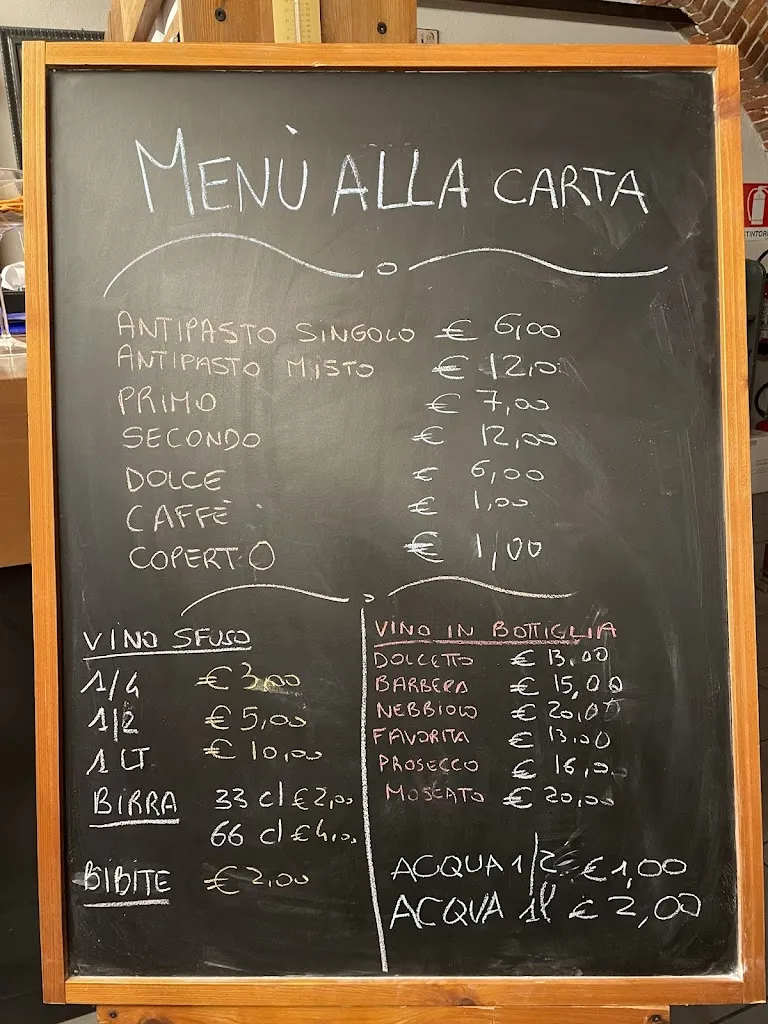 MENÙ ALLA CARTA
ANTIPASTO SINGOLO € 6,00
ANTIPASTO MISTO € 12,0
PRIMO € 7,00
SECONDO € 12,00
DOLCE € 6,00
CAFFÈ € 1,00
COPERTO € 1,00
VINO SFUSO
1/4 € 3,00
1/2 € 5,00
1 LT € 10,00
BIRRA 33 cl € 2,00
66 cl € 4,00
BIBITE € 2,00
VINO IN BOTTIGLIA
DOLCETTO € 13,00
BARBERA € 15,00
NEBBIOLO € 20,00
FAVORITA € 13,00
PROSECCO € 16,00
MOSCATO € 20,00
ACQUA 1/2 € 1,00
ACQUA 1l € 2,00